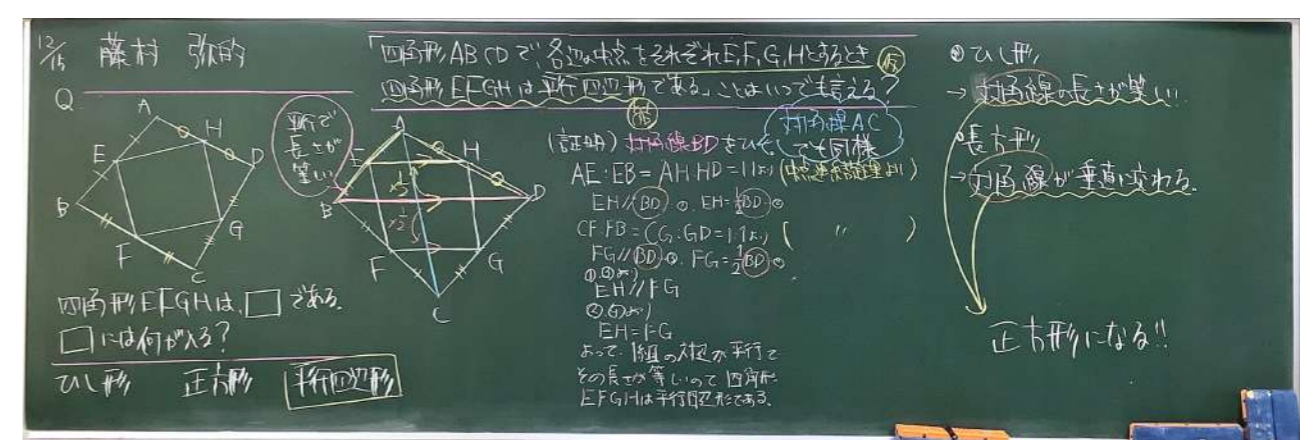 12/15 藤村 弥的
Q
A
H
E
D
B
G
F
C
四角形EFGHは、□である。
□には何が入る?
ひし形 正方形 平行四辺形
「四角形ABCDで、各辺の中点をそれぞれE,F,G,Hとするとき 仮
四角形EFGHは平行四辺形である」ことはいつでも言える?
結
平行で
長さが
等しい
A
E
H
×1/2
B
D
×1/2
F
G
C
(証明) 対角線BDをひく。
対角線AC
でも同様
AE:EB=AH:HD=1:1より(中点連結定理より)
EH//BD ①, EH=1/2BD ②
CF:FB=CG:GD=1:1より ( 〃 )
FG//BD ③, FG=1/2BD ④
①,③より
EH//FG
②,④より
EH=FG
よって、1組の対辺が平行で
その長さが等しいので 四角形
EFGHは平行四辺形である。
ひし形
→対角線の長さが等しい
長方形
→対角線が垂直に交わる。
正方形になる!!